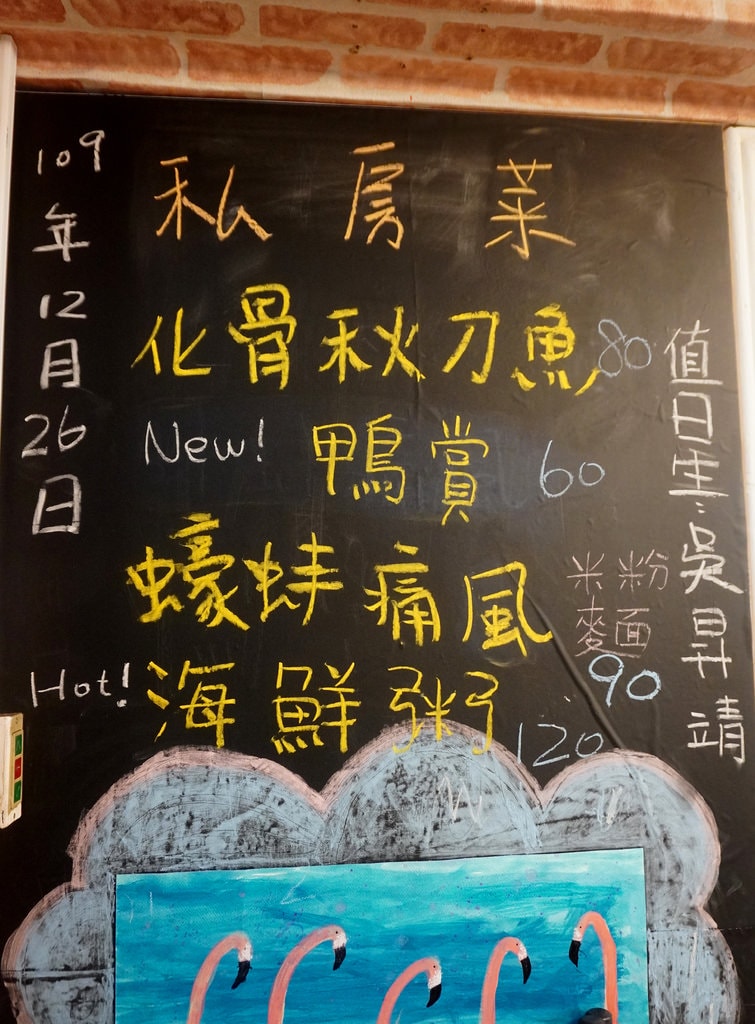 109年12月26日
私房菜
化骨秋刀魚 80
New! 鴨賞 60
蠔蚌痛風 米粉 麥面 90
Hot! 海鮮粥 120
值日生:吳昇靖